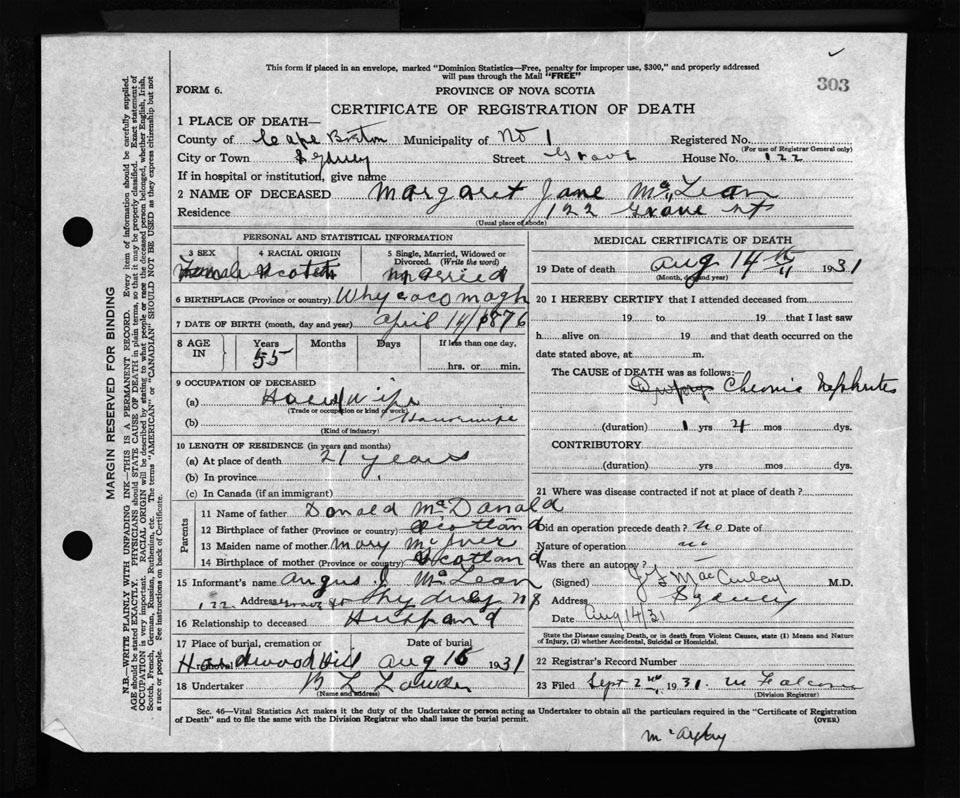 This form if placed in an envelope, marked "Dominion Statistics—Free, penalty for improper use, $300," and properly addressed
will pass through the Mail "FREE"
303
FORM 6.
PROVINCE OF NOVA SCOTIA
CERTIFICATE OF REGISTRATION OF DEATH
1 PLACE OF DEATH—
County of Cape Breton Municipality of No 1 Registered No.
(For use of Registrar General only)
City or Town Sydney Street Grove House No. 122
If in hospital or institution, give name
2 NAME OF DECEASED Margaret Jane McLean
Residence 122 Grove St
(Usual place of abode)
PERSONAL AND STATISTICAL INFORMATION
3 SEX 4 RACIAL ORIGIN 5 Single, Married, Widowed or Divorced. (Write the word)
Female Scotch Married
6 BIRTHPLACE (Province or country) Whycocomagh
7 DATE OF BIRTH (month, day and year) April 14/1876
8 AGE IN Years Months Days If less than one day,
55 hrs. or min.
9 OCCUPATION OF DECEASED
(a) House Wife
(Trade or occupation or kind of work)
(b) Housewife
(Kind of industry)
10 LENGTH OF RESIDENCE (in years and months)
(a) At place of death 21 years
(b) In province
(c) In Canada (if an immigrant)
Parents
11 Name of father Donald McDonald
12 Birthplace of father (Province or country) Scotland
13 Maiden name of mother Mary McIver
14 Birthplace of mother (Province or country) Scotland
15 Informant's name Angus J McLean
Address 122 Grove St Sydney NS
16 Relationship to deceased Husband
17 Place of burial, cremation or removal Date of burial
Hardwood Hill Aug 16 1931
18 Undertaker
(Name and address)
MEDICAL CERTIFICATE OF DEATH
19 Date of death Aug 14th 1931
(Month, day and year)
20 I HEREBY CERTIFY that I attended deceased from
19 to 19 that I last saw
h alive on 19 and that death occurred on the
date stated above, at m.
The CAUSE of DEATH was as follows:
Chronic Nephrites
(duration) 1 yrs 4 mos dys.
CONTRIBUTORY
(duration) yrs mos dys.
21 Where was disease contracted if not at place of death?
Did an operation precede death? no Date of
Nature of operation no
Was there an autopsy?
(Signed) M.D.
Address Sydney
Date Aug 14/31
State the Disease causing Death, or in death from Violent Causes, state (1) Means and Nature of Injury, (2) whether Accidental, Suicidal or Homicidal.
22 Registrar's Record Number
23 Filed Sept 2nd 1931
(Division Registrar)
Sec. 46—Vital Statistics Act makes it the duty of the Undertaker or person acting as Undertaker to obtain all the particulars required in the "Certificate of Registration
of Death" and to file the same with the Division Registrar who shall issue the burial permit.
(OVER)
MARGIN RESERVED FOR BINDING
N.B.—WRITE PLAINLY WITH UNFADING INK—THIS IS A PERMANENT RECORD. Every item of information should be carefully supplied.
AGE should be stated EXACTLY. PHYSICIANS should STATE CAUSE OF DEATH in plain terms, so that it may be properly classified. Exact statement of
OCCUPATION is very important. RACIAL ORIGIN will be described by stating to what people or race the deceased person belonged, whether English, Irish,
Scotch, French, German, Russian, Ruthenian, etc. The terms "AMERICAN" or "CANADIAN" SHOULD NOT BE USED as they express citizenship but not
a race or people. See instructions on back of Certificate.